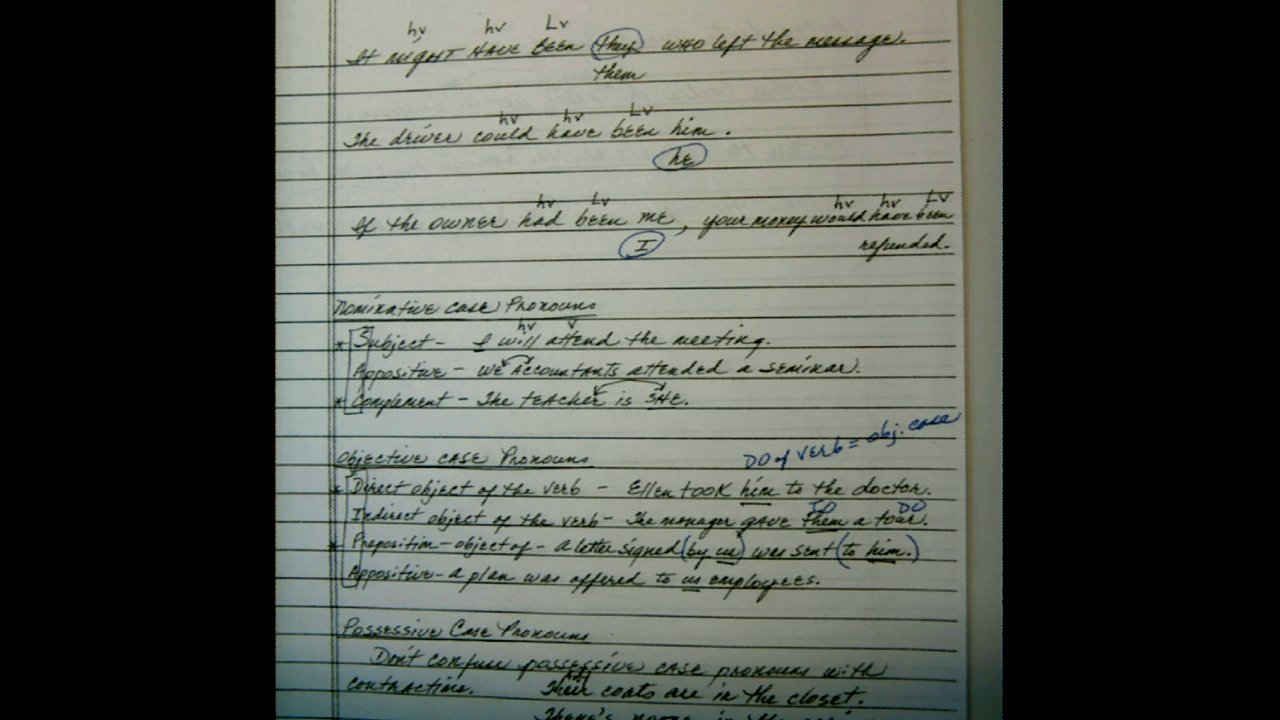 hv hv Lv
It might HAVE BEEN they who left the message.
them
hv hv Lv
The driver could have been him.
he
hv Lv hv hv Lv
If the owner had been me, your money would have been
I refunded.
Nominative Case Pronouns
hv v
* Subject - I will attend the meeting.
Appositive - We Accountants attended a seminar.
* Complement - The teacher is SHE.
DO of verb = obj. case
Objective Case Pronouns
* Direct object of the verb - Ellen took him to the doctor.
IO DO
Indirect object of the verb - The manager gave them a tour.
* Preposition - object of - a letter signed (by us) was sent (to him.)
Appositive - a plan was offered to us employees.
Possessive Case Pronouns
Don't confuse possessive case pronouns with
contractions. Their coats are in the closet.
There's room in the